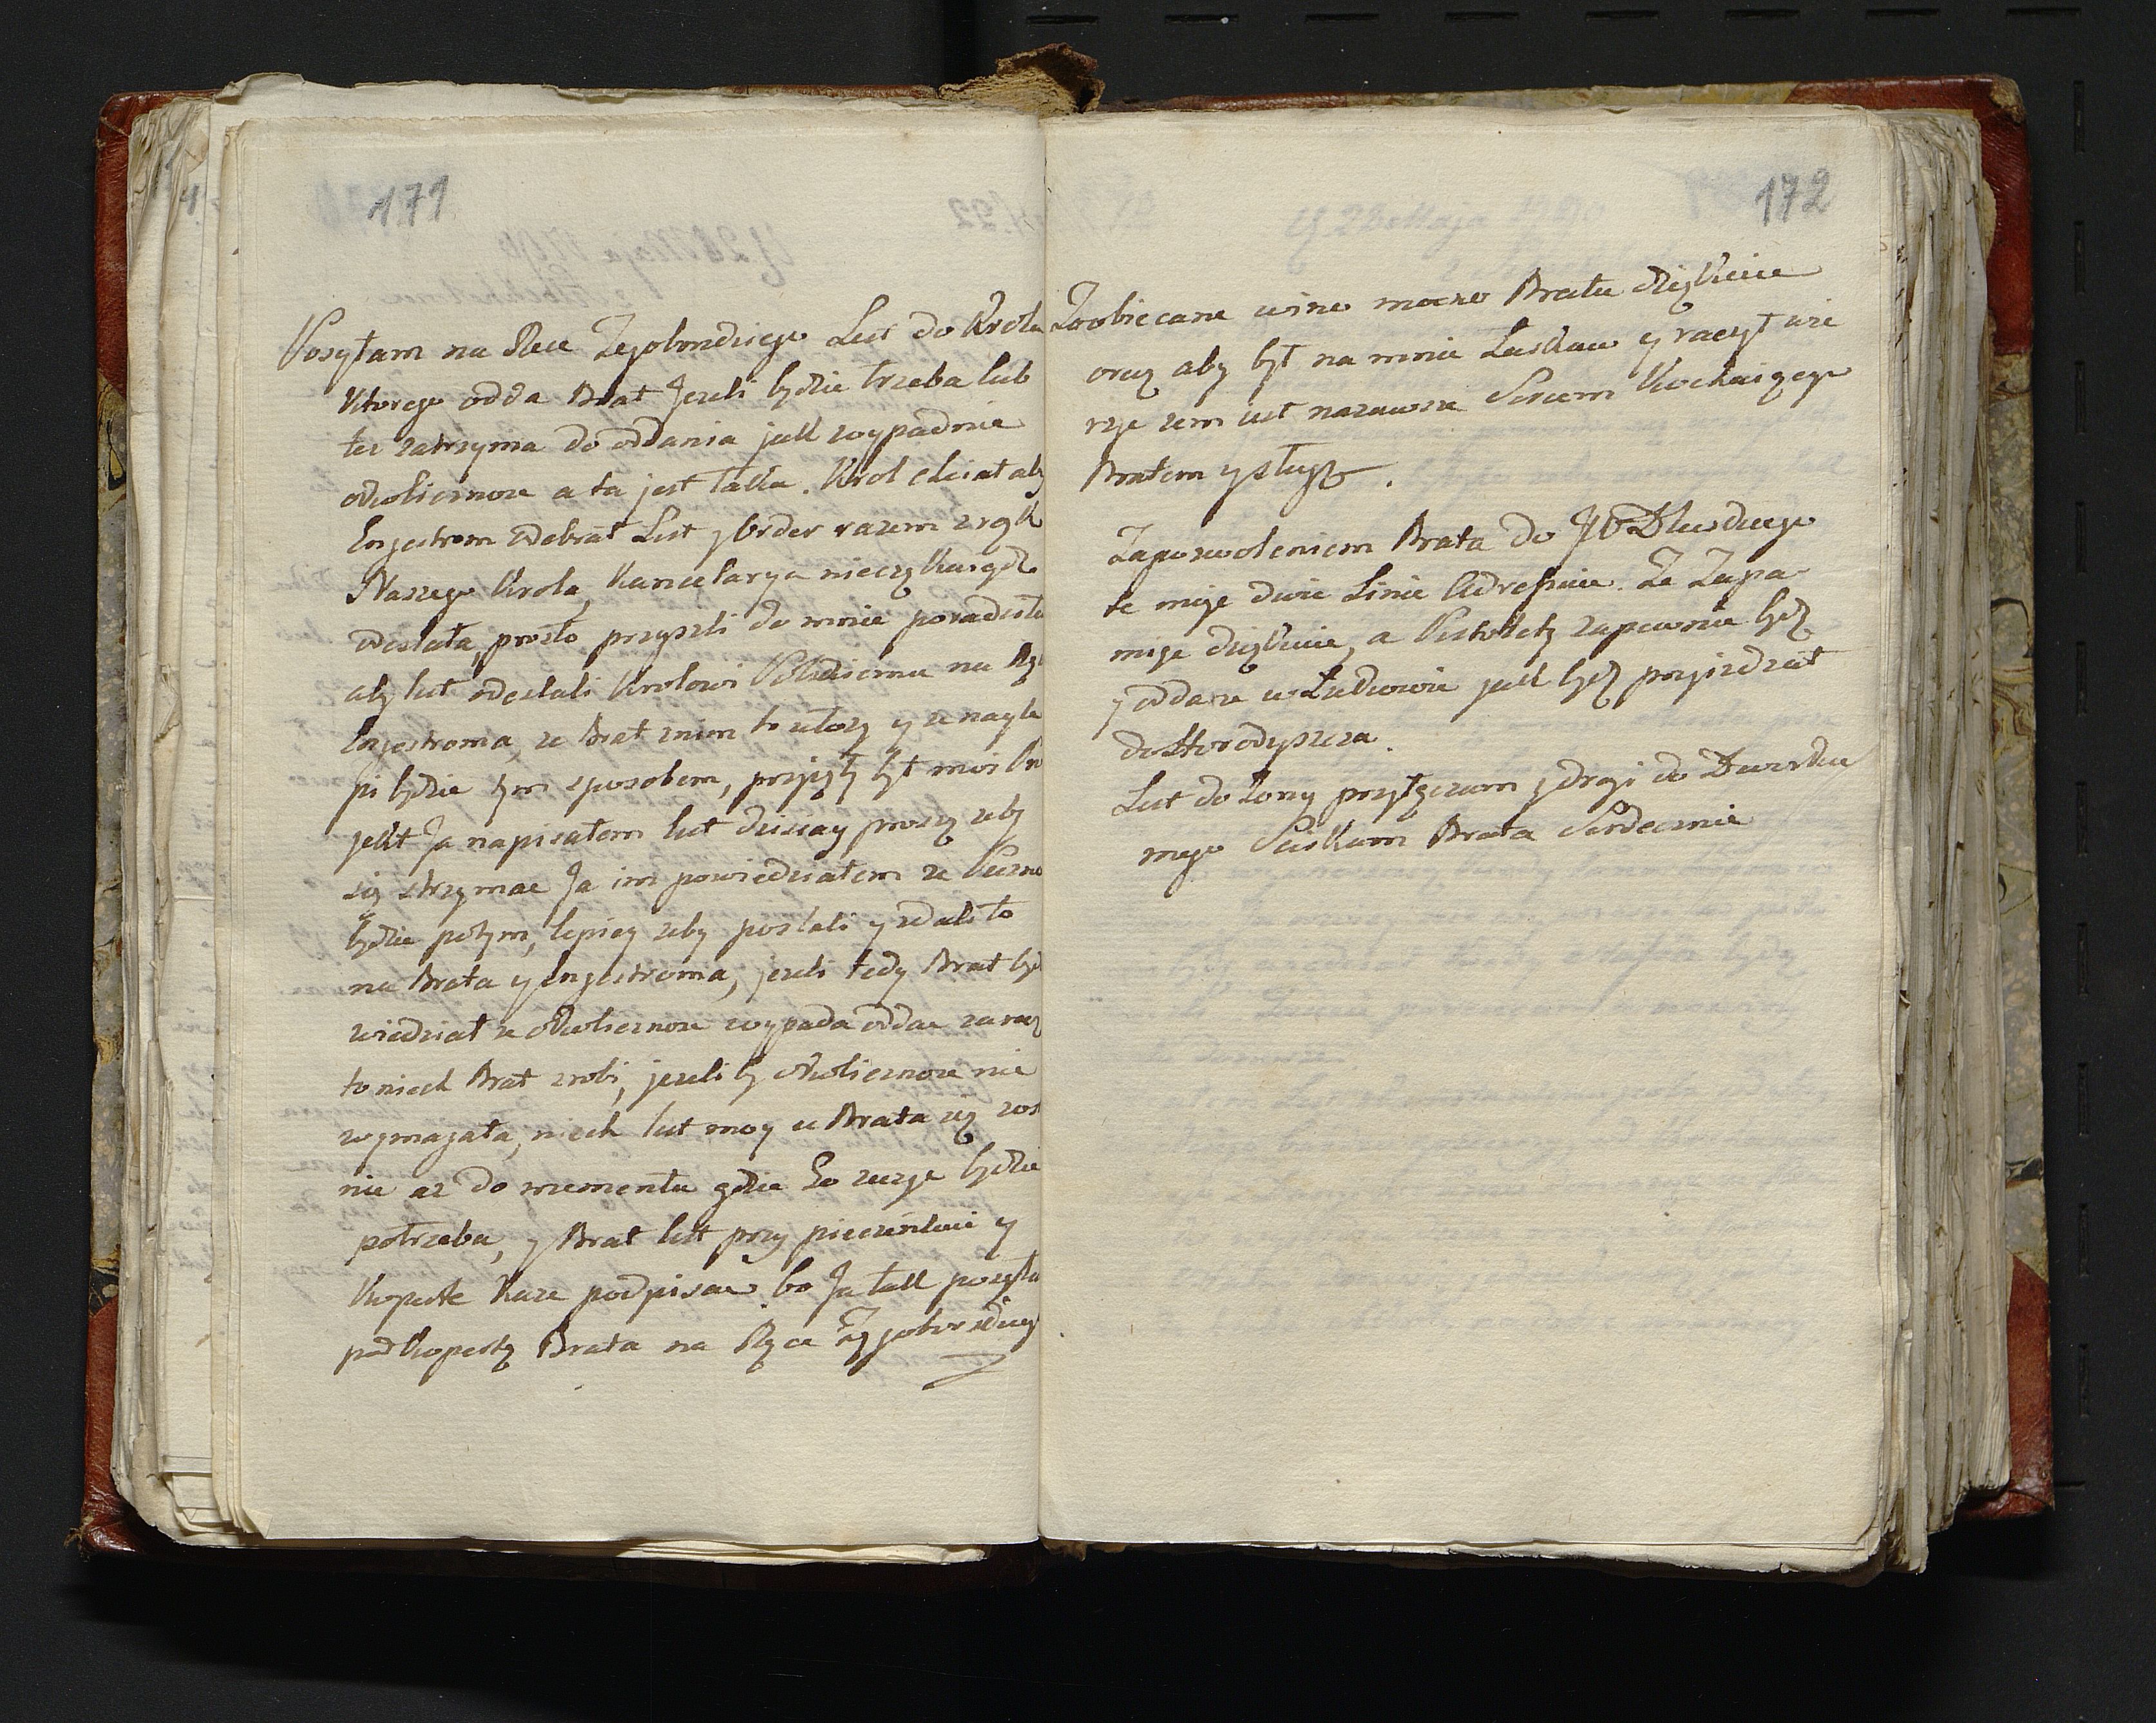 171
Posyłam na Ręce Zejobondziego List do Krola
ktorego odda Brat Jezeli będzie trzeba lub
tez zatrzyma do oddania jak wypadnie
okolicznosc a ta jest taka. Krol chciał aby
Engestrom odebrał List y Order razem z rąk
Naszego Krola, Kancelarya nieczekaiąc
odesłała, przeto przyszli do mnie
aby list odesłali Krolowi Polskiemu na Ręce
Engestroma, ze Brat znim to ułozy y ze nagle
pi będzie tym sposobem, przyięty był moi
jekt Ja napisałem list dzisiay proszą zeby
się strzymac Ja im powiedziałem ze Pozno
będzie potym, lepiey zeby posłali y zdali to
na Brata y Engestroma, jezeli tedy Brat będ
wiedział ze okolicznosc wypada oddac zaraz
to niech Brat zrobi, jezeli by okolicznosc nie
wymagała, niech list moy u Brata się zos
nie az do momentu gdzie Go uzyc będzie
potrzeba, y Brat list przy pieczeństwie y
Koperte Kaze podpisac bo Ja tak posyła
pod Kopertą Brata na Ręce
172
Zaobiecane wino mocno Bratu dziękuie
oraz aby był na mnie Łaskaw y raczył wie
rzyc zem iest nazawsze Sercem Kochaiącego
Bratem y sługą.
Zapozwoleniem Brata do JW Dłuskiego
te moje dwie Linie Adressuie. Za Zapa
moje dziękuie, a Pistolety zapewnie będę
y oddaze w Ludwowie jak będę przyiezdzał
do Horodyszcza.
List do Zony przyłączam y drogi do Dworku
mego Sciskam Brata Serdecznie